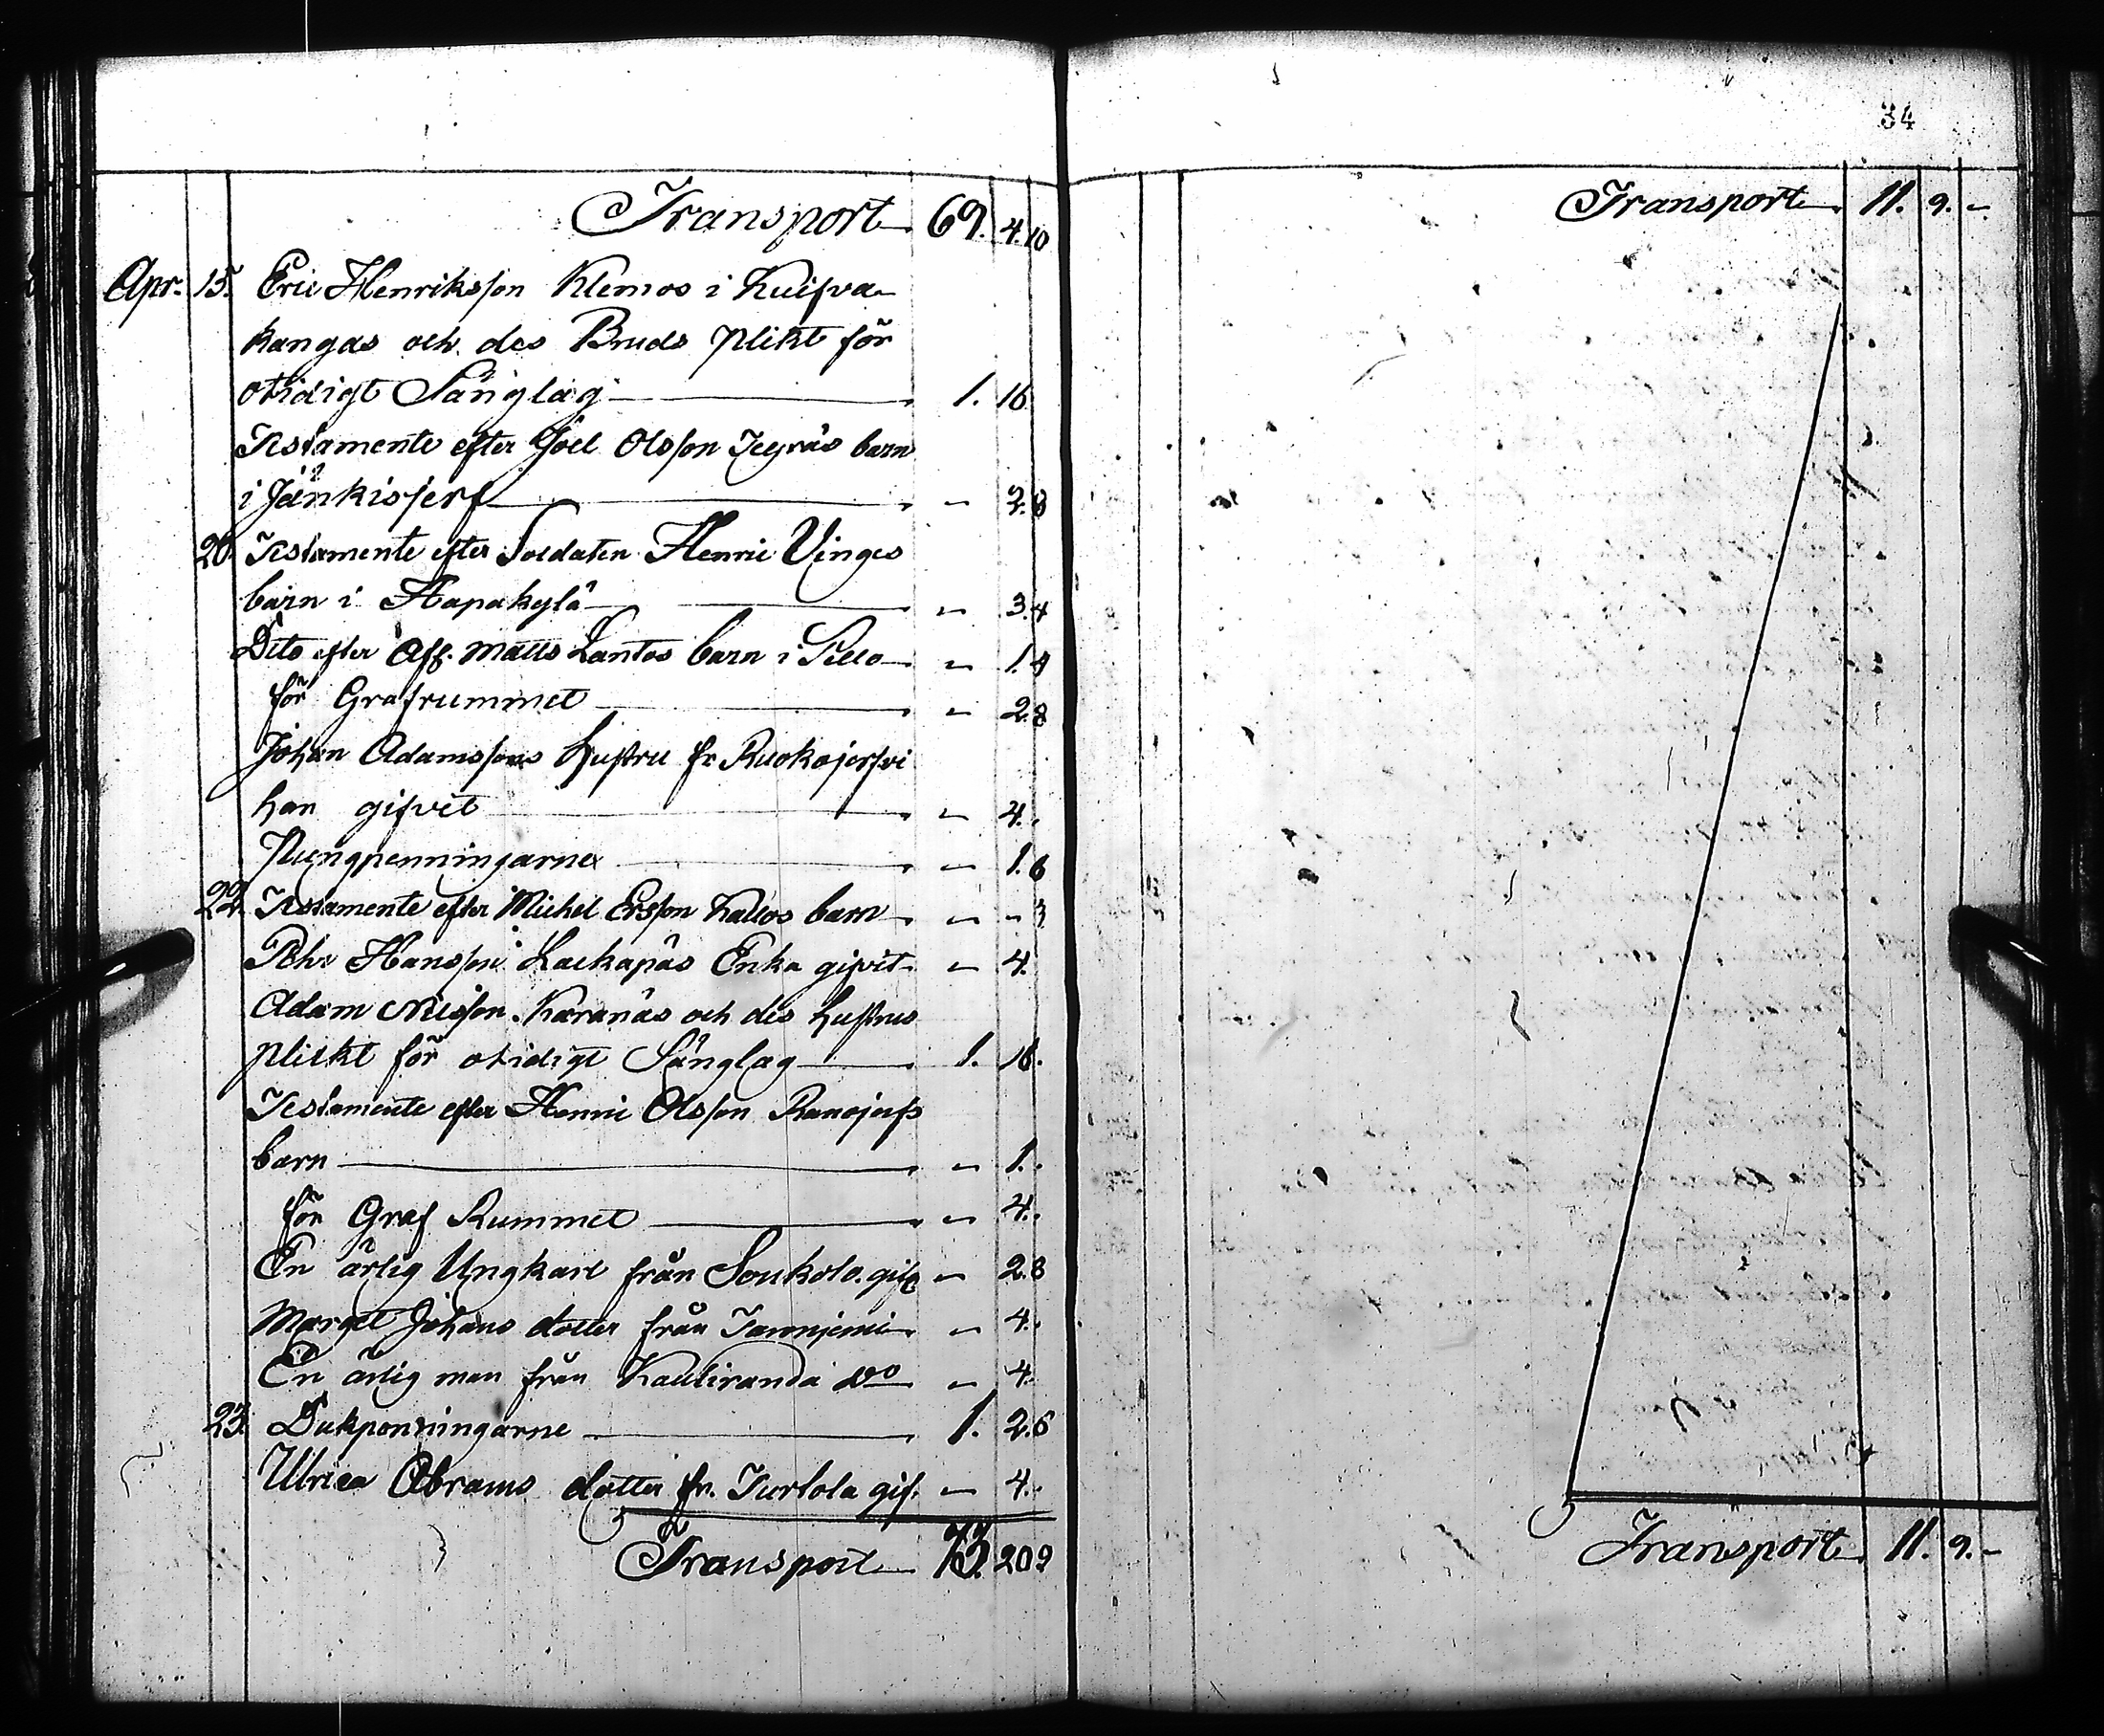 Transport 69. 4. 10
Apr. 15. Eric Henriksson Klemos i Kuifva-
kangas och des Bruds plikt för
otidigt Sänglag 1. 16
Testamente efter Joel Olsson barn
i Jänkisjerf " 2. 8
20. Testamente efter Soldaten Henric Vinges
barn i Hapakylä " 3. 4
Dito efter Afl. Matts Lantos barn i Pello " 1. 4
för Grafrummet " 2. 8
Johan Adamssons hustru fr Ruokojerfvi
han gifvit " 4. "
Pungpenningarne " 1. 6
22. Testamente efter Michel Ersson Kallos barn " " 3
Pehr Hansson Laukapäs Enka gifvit " 4.
Adam Nilsson Karanäs och des hustrus
plickt för otidigt Sänglag 1. 16.
Testamente efter Henric Olsson Ranojerfs
barn " 1. "
för Graf Rummet " 4. "
En ärlig Ungkarl från Soukolo gif. " 2. 8
Marget Johans dotter från " 4. "
En ärlig man från Kauliranda do " 4.
23. Dukpenningarne 1. 2. 6
Ulrica Abrams dotter fr. Turtola gif. " 4. "
Transport 73. 20 2
34
Transport 11. 9. "
Transport 11. 9. "